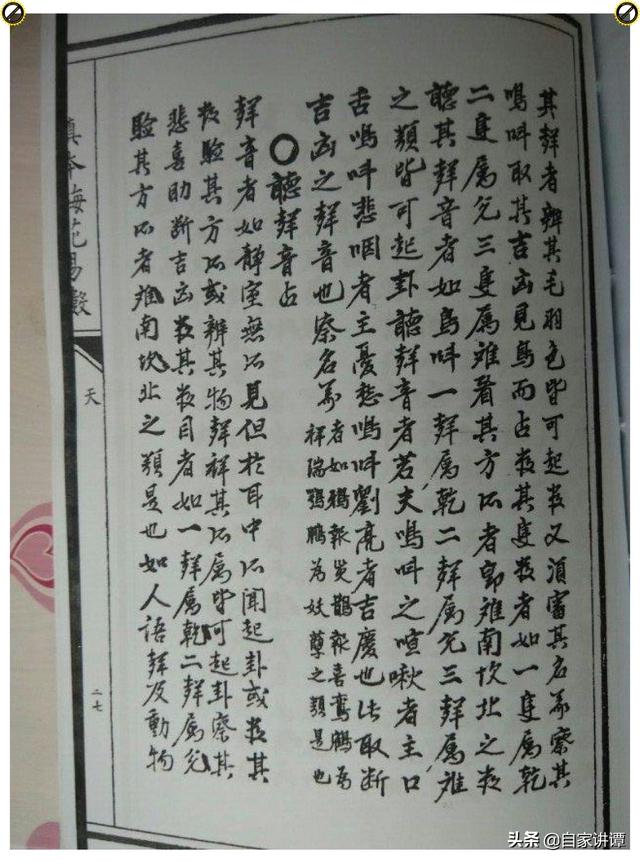 其聲者辨其毛羽色皆可起数又須審其名義察其
鳴叫取其吉凶見鳥而占数其隻数者如一隻属乾
二隻属兊三隻属離看其方所者即離南坎北之数
聽其聲音者如鳥叫一聲属乾二聲属兊三聲属離
之類皆可起卦聽聲音者若夫鳴叫之喧啾者主口
舌鳴叫悲咽者主憂愁鳴叫劉亮者吉慶也此取断
吉凶之聲音也察名義者如鴉報災鵲報喜鸞鶴為
祥瑞鶚鵬為妖孽之類是也
○聽聲音占
聲音者如静室無所見但於耳中所聞起卦或数其
数驗其方所或辨其物聲祥其所属皆可起卦察其
悲喜助断吉凶数其数目者如一聲属乾二聲属兊
驗其方所者離南坎北之類是也如人語聲及動物
真本梅花易數
天
二七
头条 @自家讲谭